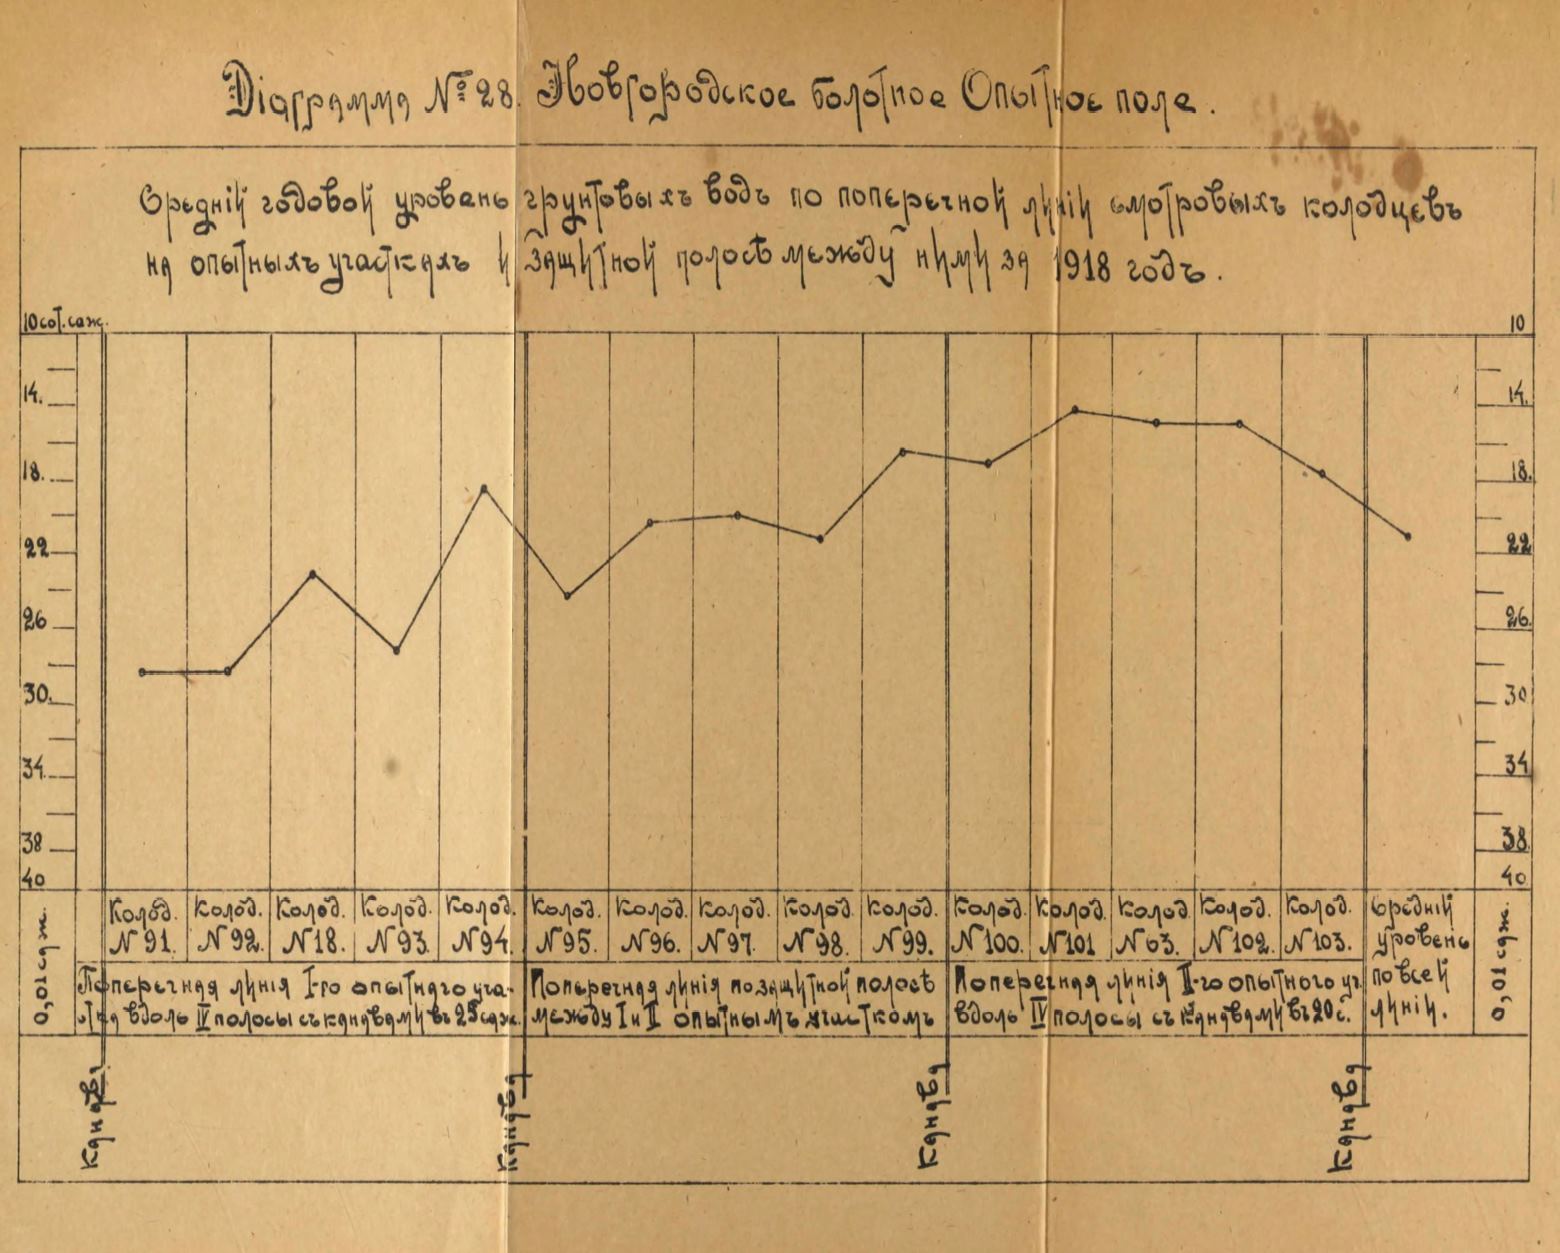 Діаграмма № 28. Новгородское болотное Опытное поле.
Средній годовой уровень грунтовыхъ водъ по поперечной линіи смотровыхъ колодцевъ
на опытныхъ участкахъ и защитной полосѣ между ними за 1918 годъ.
10 сот. саж. 10
14. 14.
18. 18.
22 22
26 26.
30. 30
34. 34
38 38
40 40
0,01 саж. 0,01 саж.
Колод. № 91. Колод. № 92. Колод. № 18. Колод. № 93. Колод. № 94. Колод. № 95. Колод. № 96. Колод. № 97. Колод. № 98. Колод. № 99. Колод. № 100. Колод. № 101 Колод. № 63. Колод. № 102. Колод. № 103. Средній уровень по всей линіи.
Поперечная линія I-го опытнаго уча-
стка вдоль IV полосы съ канавами въ 25 саж.
Поперечная линія по защитной полосѣ
между I и II опытнымъ участкомъ
Поперечная линія II-го опытного уч.
вдоль IV полосы съ канавами въ 20 с.
Канава Канава Канава Канава